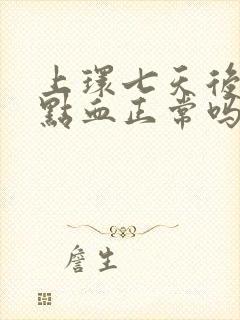 上環七天後
點血正常嗎
詹生